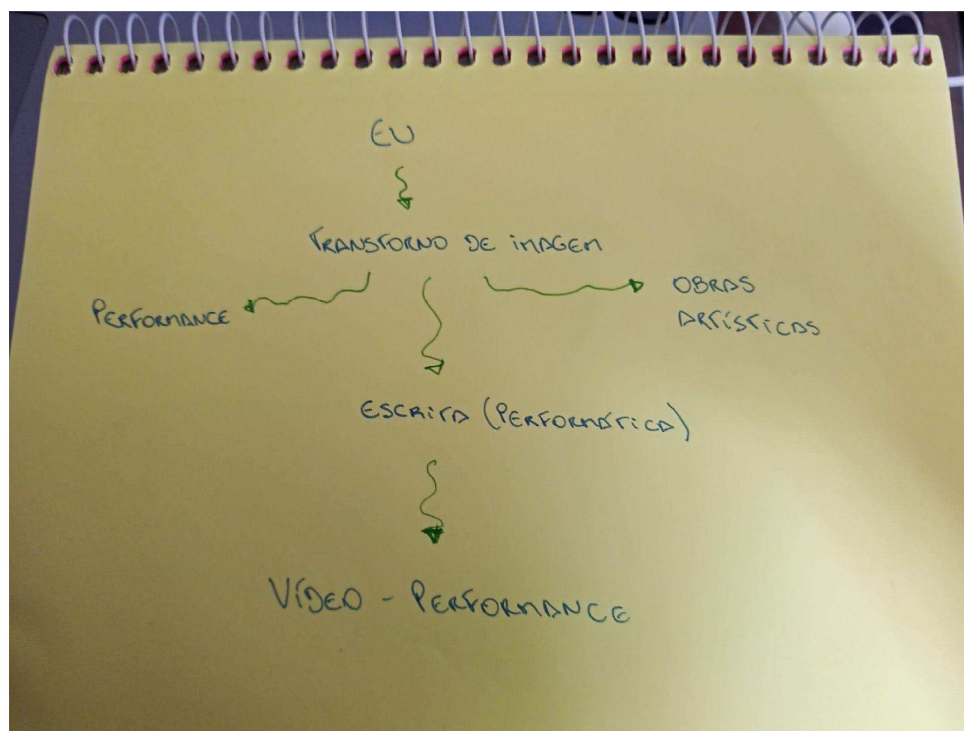 EU
TRANSTORNO DE IMAGEM
PERFORMANCE
OBRAS
ARTÍSTICAS
ESCRITA (PERFORMÁTICA)
VÍDEO - PERFORMANCE